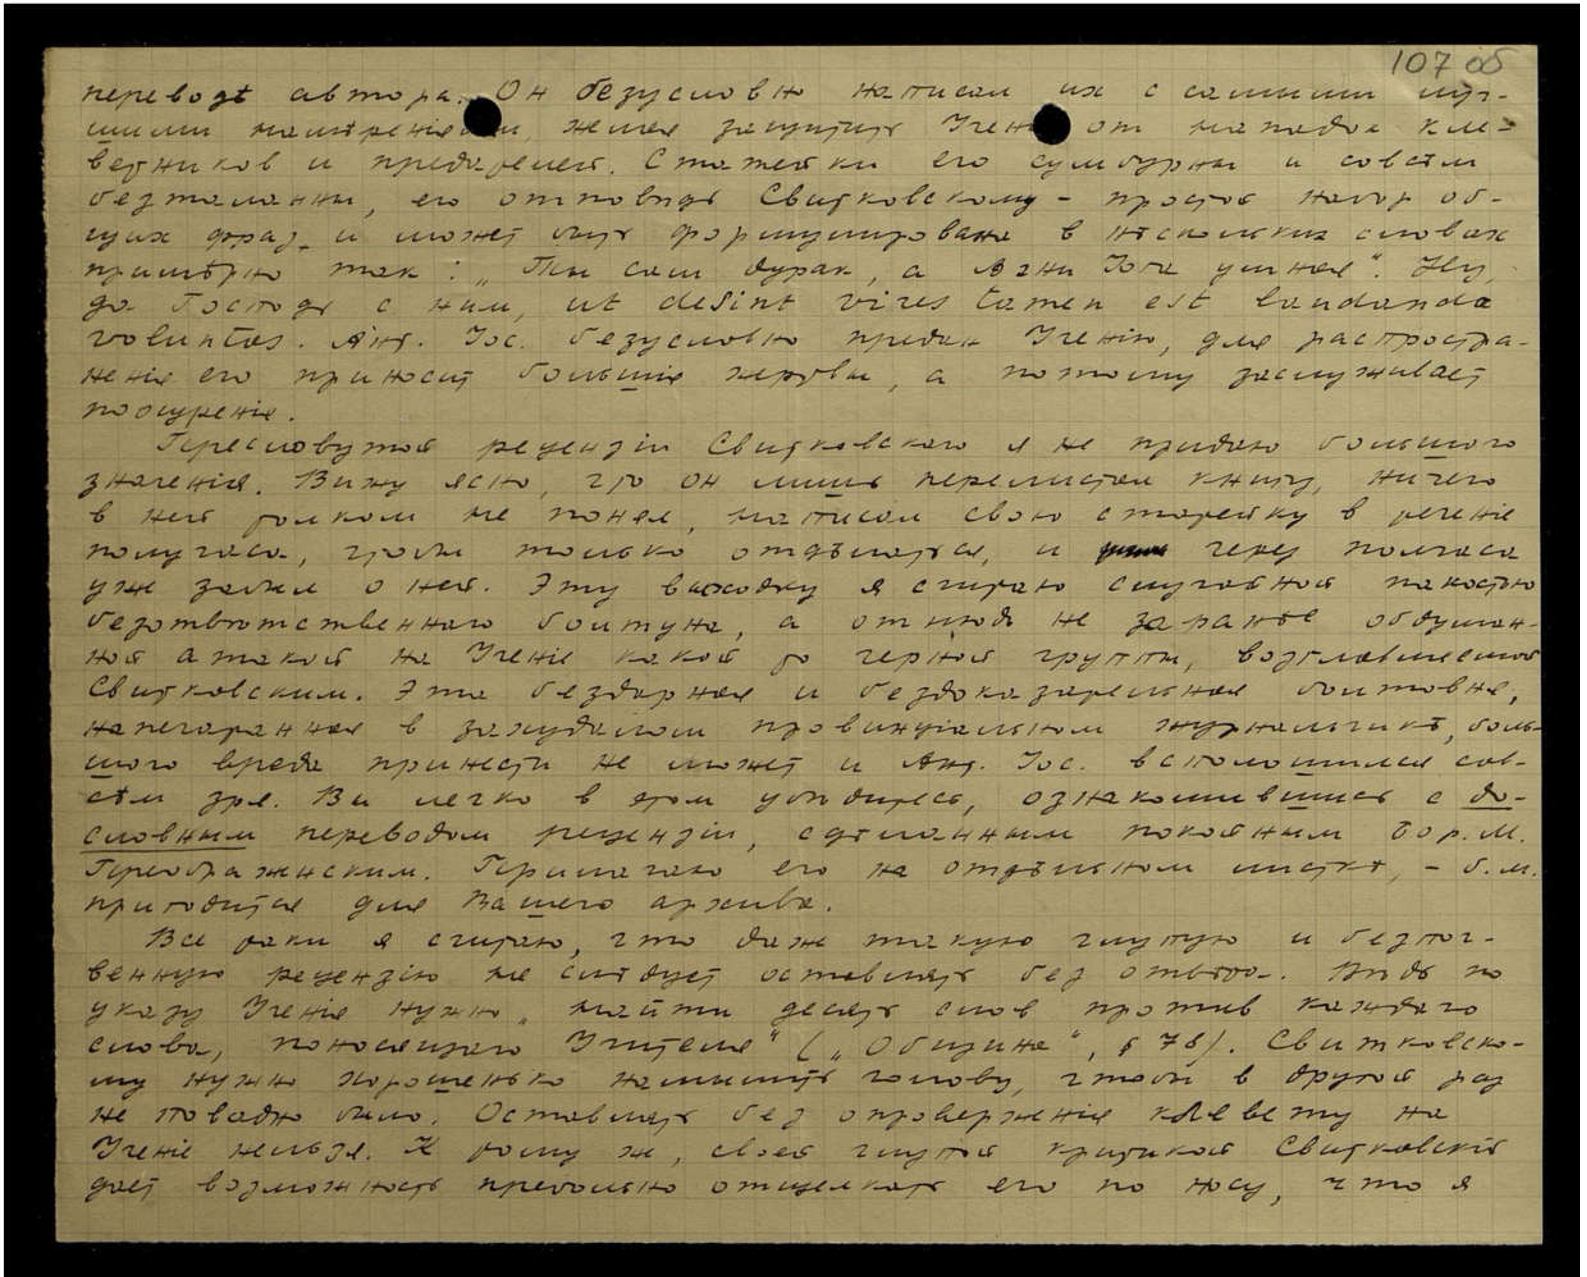 107 об
переводѣ автора. Он безусловно написал их с самыми луч-
шими намѣреніями, желая защитить Ученіе от нападок кле-
ветников и предателей. Статейки его сумбурны и совсѣм
безталанны, его отповѣдь Свитковскому – простой набор об-
щих фраз и может быть формулирована в нѣскольких словах
примѣрно так: „Ты сам дурак, а Агни Йога умная“. Ну,
да Господь с ним, ut desint vires tamen est laudanda
voluntas. Ант. Іос. безусловно предан Ученію, для распростра-
ненія его приносит большія жертвы, а потому заслуживает
поощренія.
Пресловутой рецензіи Свитковскаго я не придаю большого
значенія. Вижу ясно, что он лишь перелистал книгу, ничего
в ней толком не понял, написал свою статейку в теченіе
получаса, чтобы только отдѣлаться, и через полчаса
уже забыл о ней. Эту выходку я считаю случайной пакостью
безотвѣтственнаго болтуна, а отнюдь не заранѣе обдуман-
ной атакой на Ученіе какой то черной группы, возглавляемой
Свитковским. Эта бездарная и бездоказательная болтовня,
напечатанная в захудалом провинціальном журнальчикѣ, боль-
шого вреда принести не может и Ант. Іос. всполошился сов-
сѣм зря. Вы легко в этом убѣдитесь, ознакомившись с до-
словным переводом рецензіи, сдѣланным покойным Бор. М.
Преображенским. Прилагаю его на отдѣльном листкѣ, – б.м.
пригодится для Вашего архива.
Все таки я считаю, что даже такую глупую и безпоч-
венную рецензію не слѣдует оставлять без отвѣта. Вѣдь по
указу Ученія нужно „найти десять слов против каждаго
слова, поносящаго Учителя“ („Община“, § 78). Свитковско-
му нужно хорошенько намылить голову, чтобы в другой раз
не повадно было. Оставлять без опроверженія клевету на
Ученіе нельзя. К тому же, своей глупой критикой Свитковскій
дает возможность превольно отщелкать его по носу, что я